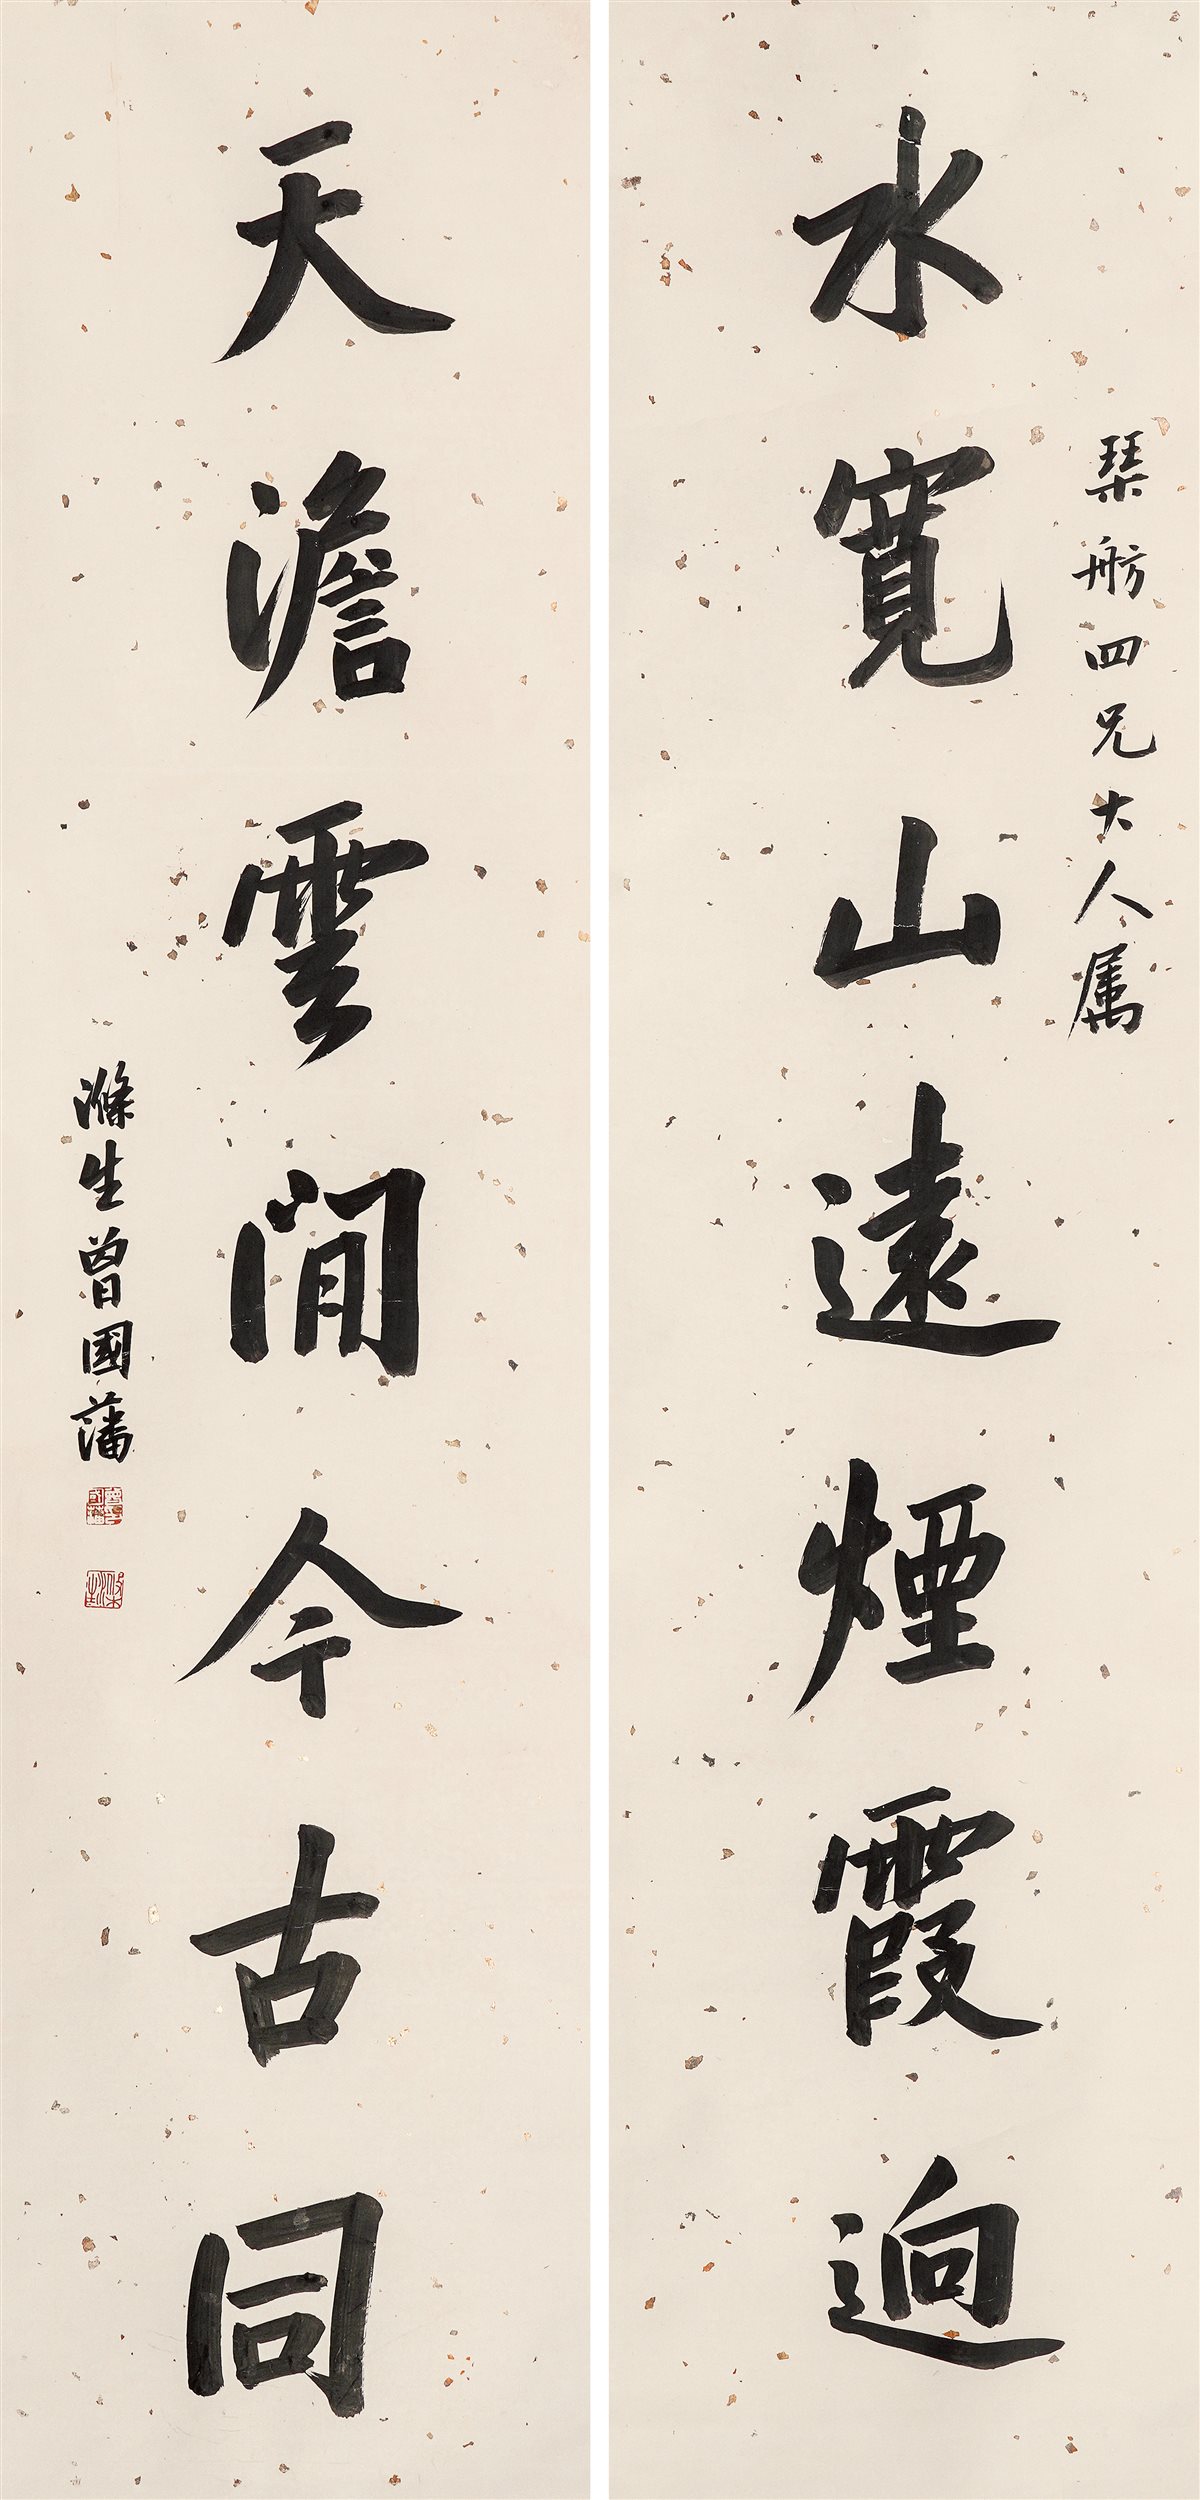 琹舫四兄大人属
水寬山遠煙霞迥
天澹雲閒今古同
滌生曾國藩